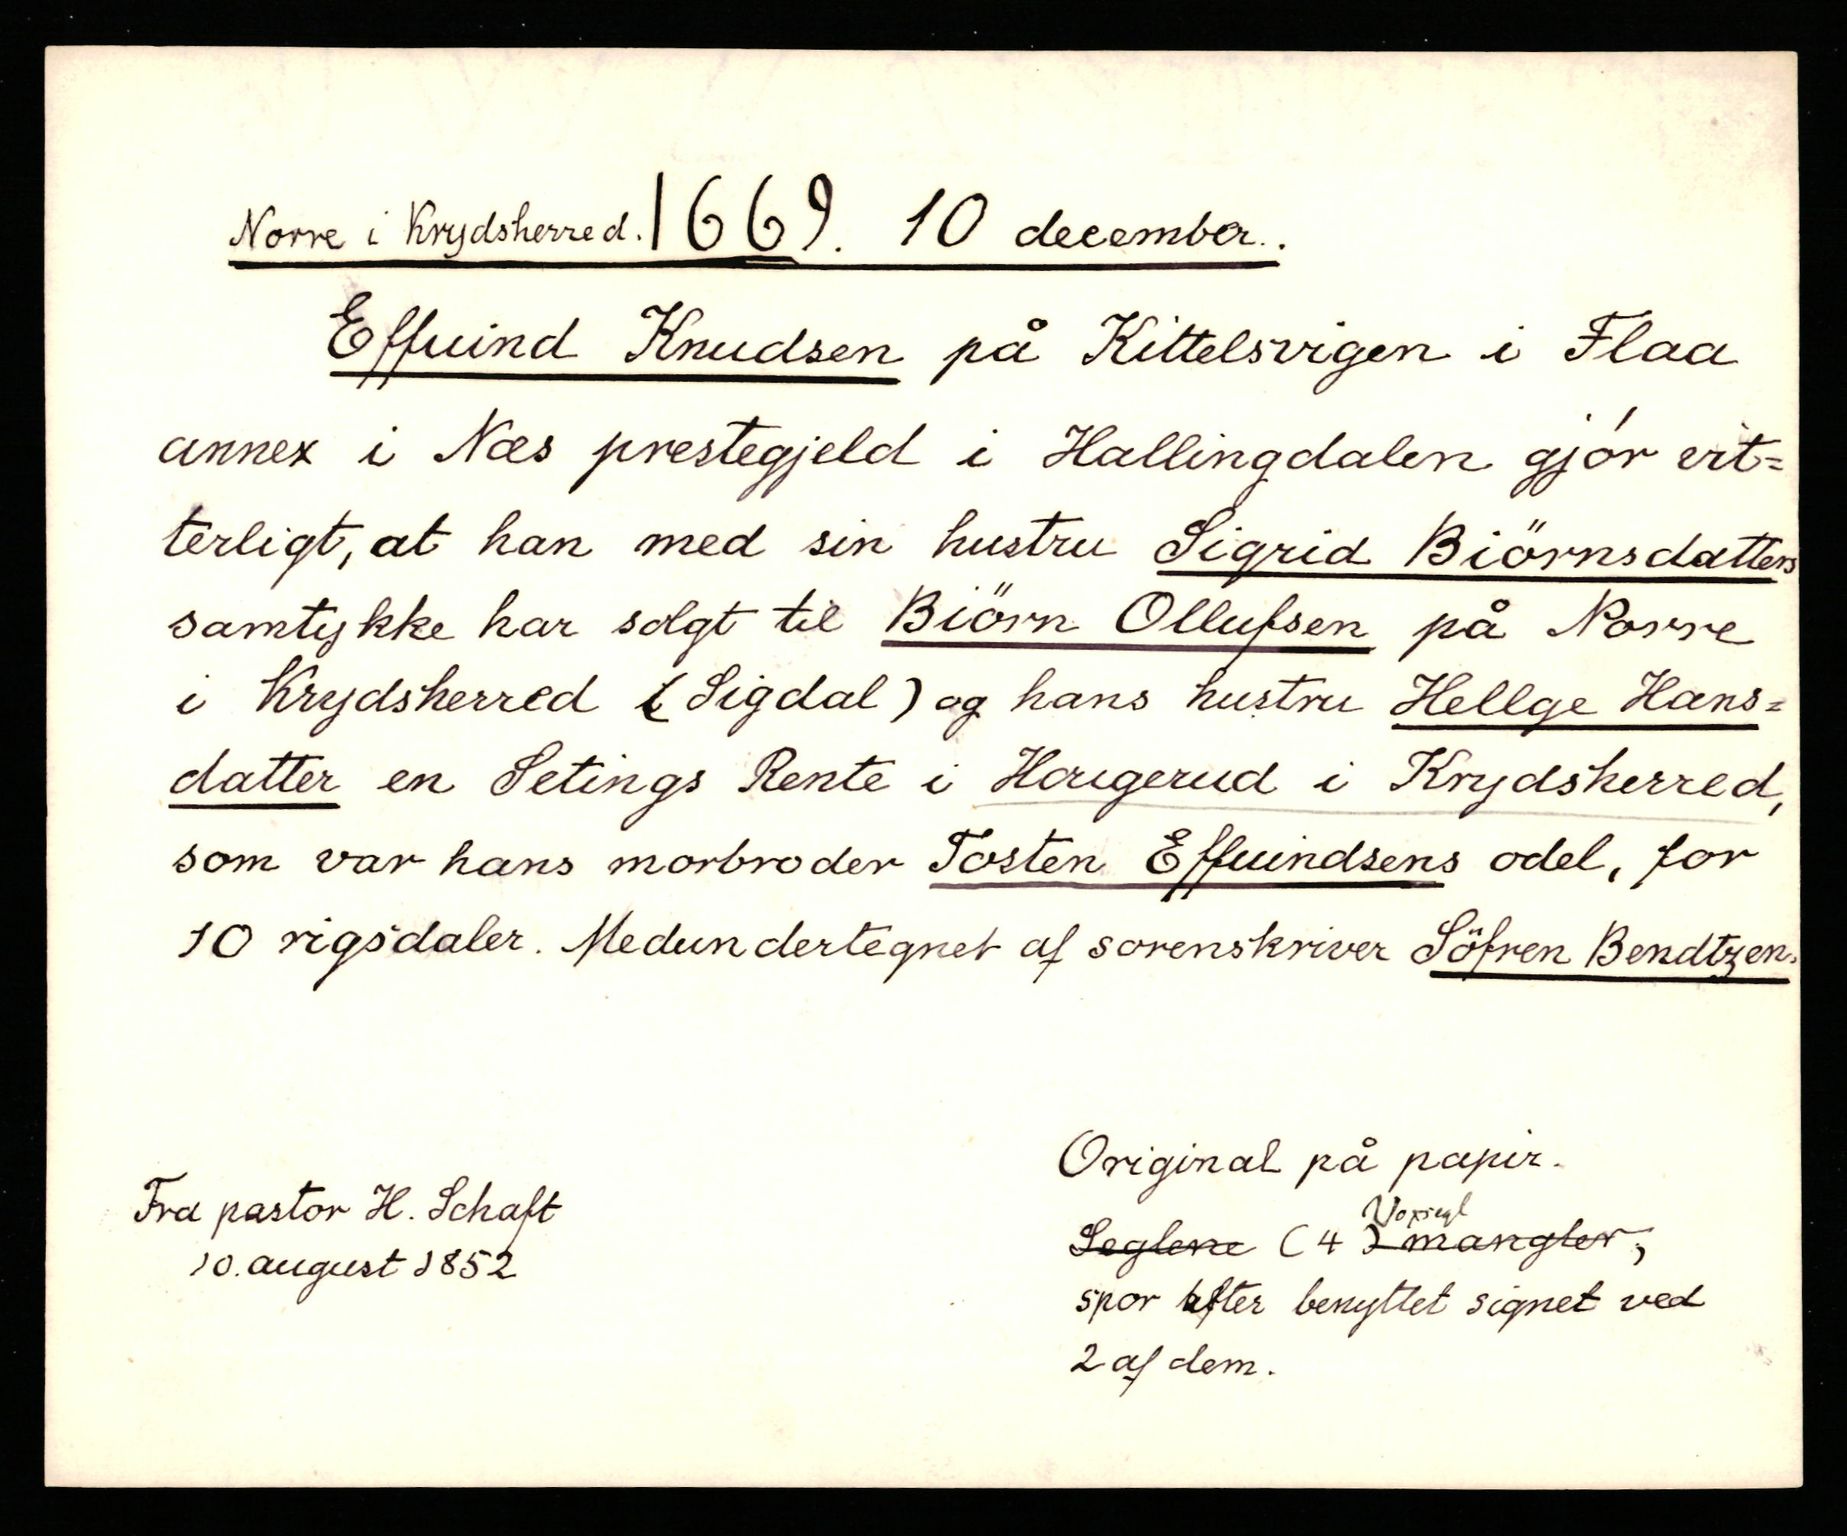 Norre i Krydsherred. 1669. 10 december.
Effuind Knudsen på Kittelsvigen i Flaa
annex i Næs prestegjeld i Hallingdalen gjór vit=
terligt, at han med sin hustru Sigrid Biörnsdatters
samtykke har solgt til Biörn Ollufsen på Norre
i Krydsherred (Sigdal) og hans hustru Hellge Hans=
datter en Setings Rente i Haugerud i Krydsherred,
som var hans morbroder Tosten Effuindsens odel, for
10 rigsdaler. Medundertegnet af sorenskriver Söfren Bendtzen.
Original på papir.
Fra pastor H. Schaft
10. august 1852
Voxsegl
Seglene (4) mangler,
spor efter benyttet signet ved
2 af dem.